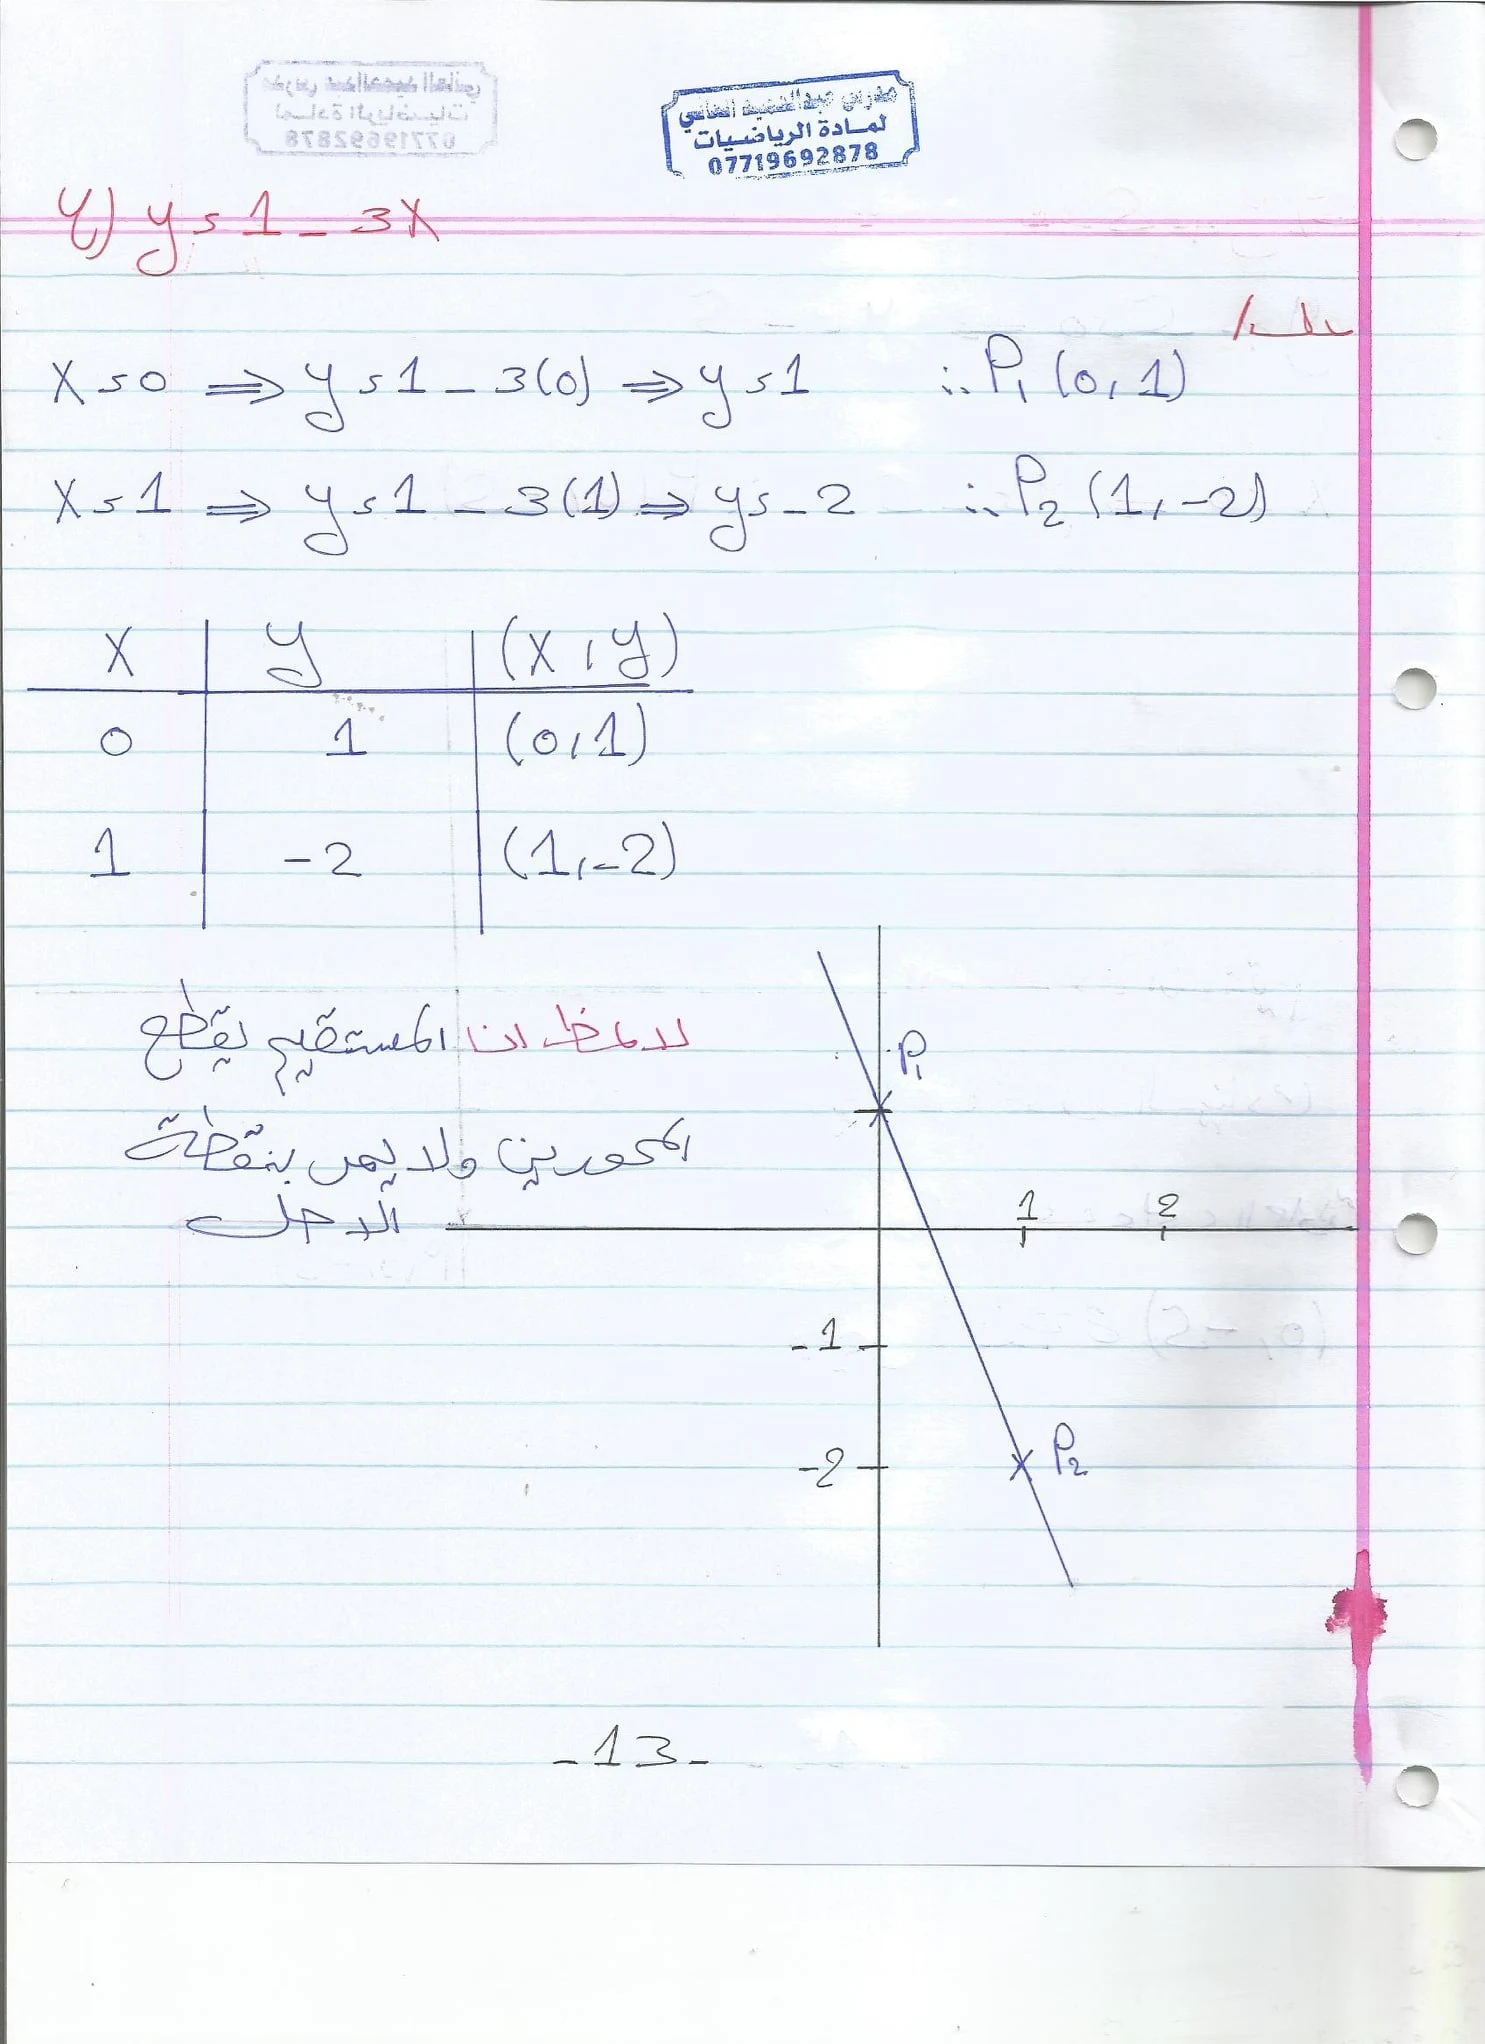 مدرس عبدالحميد العاني
لمادة الرياضيات
07719692878
4) y = 1 - 3X
الحل/
X = 0 ⇒ y = 1 - 3(0) ⇒ y = 1 ∴ P₁ (0, 1)
X = 1 ⇒ y = 1 - 3(1) ⇒ y = -2 ∴ P₂ (1, -2)
X y (X, y)
0 1 (0, 1)
1 -2 (1, -2)
لاحظ ان المستقيم يقطع
المحورين ولا يمر بنقطة
الاصل
P₁
1 2
-1
-2 P₂
-13-